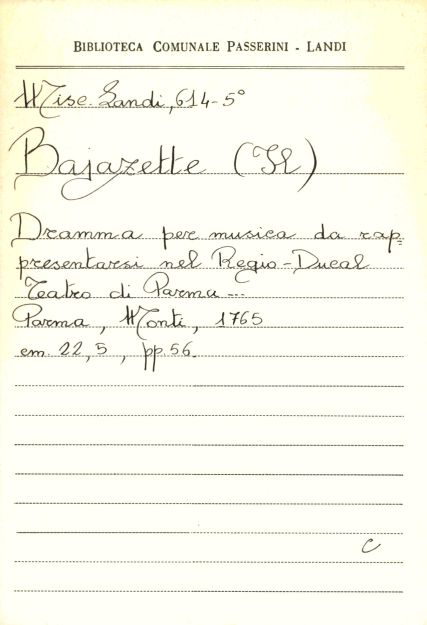 BIBLIOTECA COMUNALE PASSERINI - LANDI
Misc. Landi, 614-5°
Bajazette (Il)
Dramma per musica da rap=
presentarsi nel Regio-Ducal
Teatro di Parma ...
Parma, Monti, 1765
cm. 22,5, pp. 56.
C